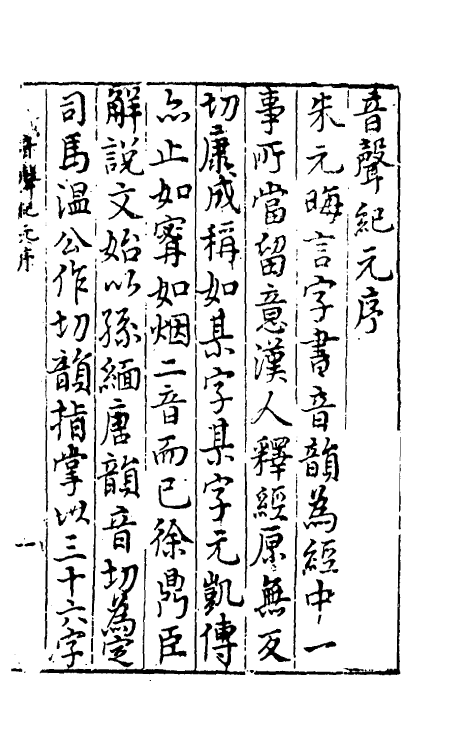 音聲紀元序
朱元晦言字書音韻為經中一
事所當留意漢人釋經原無反
切康成稱如某字某字元凱傳
亦止如甯如烟二音而已徐鼎臣
解說文始以孫緬唐韻音切為定
司馬溫公作切韻指掌以三十六字
音聲紀元序
一